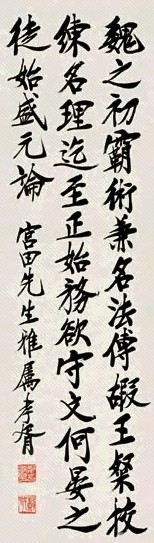 魏之初霸術兼名法傅嘏王粲校
練名理迄至正始務欲守文何晏之
徒始盛元論 宮田先生雅屬孝胥